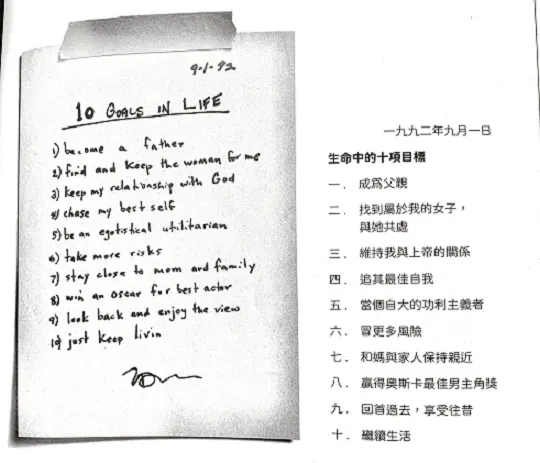 9-1-92
10 GOALS IN LIFE
1) become a father
2) find and keep the woman for me
3) keep my relationship with God
4) chase my best self
5) be an egotistical utilitarian
6) take more risks
7) stay close to mom and family
8) win an Oscar for best actor
9) look back and enjoy the view
10) just keep livin
一九九二年九月一日
生命中的十項目標
一. 成爲父親
二. 找到屬於我的女子，
與她共處
三. 維持我與上帝的關係
四. 追其最佳自我
五. 當個自大的功利主義者
六. 冒更多風險
七. 和媽與家人保持親近
八. 贏得奧斯卡最佳男主角獎
九. 回首過去，享受往昔
十. 繼續生活